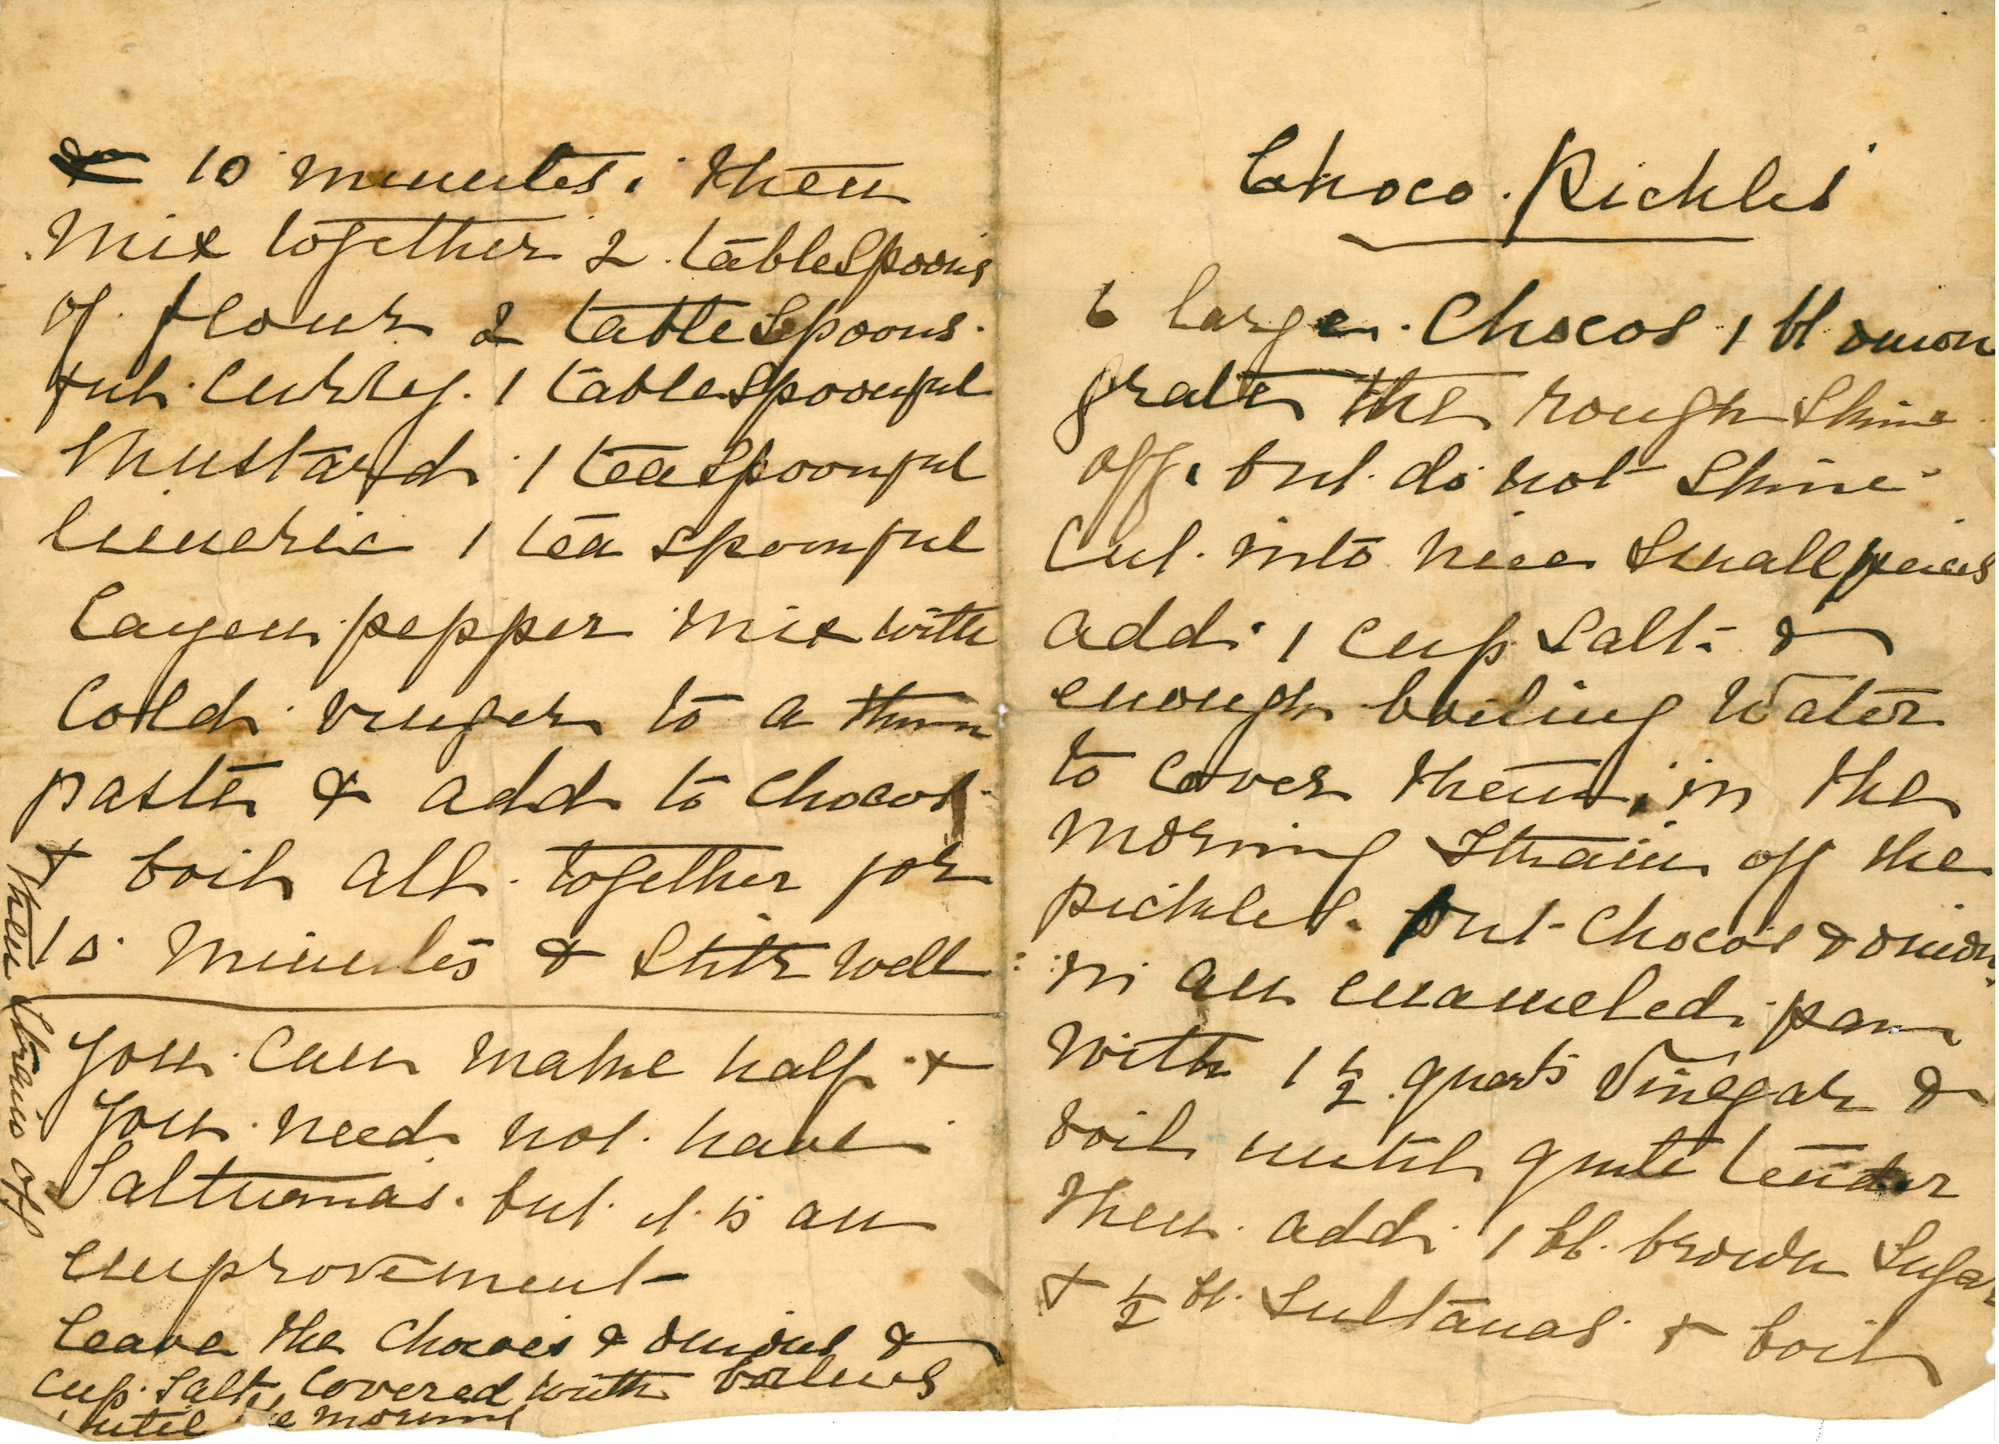 Choco. Pickles
6 large. Chocos 1 lb onion
grate the rough skine
off. but do not skine
cut into nice small peices
add 1 cup salt &
enough boiling water
to cover them, in the
morning strain off the
pickles. Put chocos & onion
in an enameled pan
with 1 1/2 quarts Vinegar &
boil until quite tender
then add 1 lb. brown sugar
& 1/2 lb. Sultanas & boil
10 minutes. then
mix together 2 tablespoons
of flour 2 tablespoons
ful curry. 1 tablespoonful
mustard 1 teaspoonful
1 tea spoonful
Cayen pepper mix with
cold vinger to a thin
paste & add to chocos
& boil all together for
10 minutes & stir well
you can make half &
you need not have
Saltuanas. but it is an
improvement
leave the chocos & onions &
cup salt, covered with
until the morning
then strain off